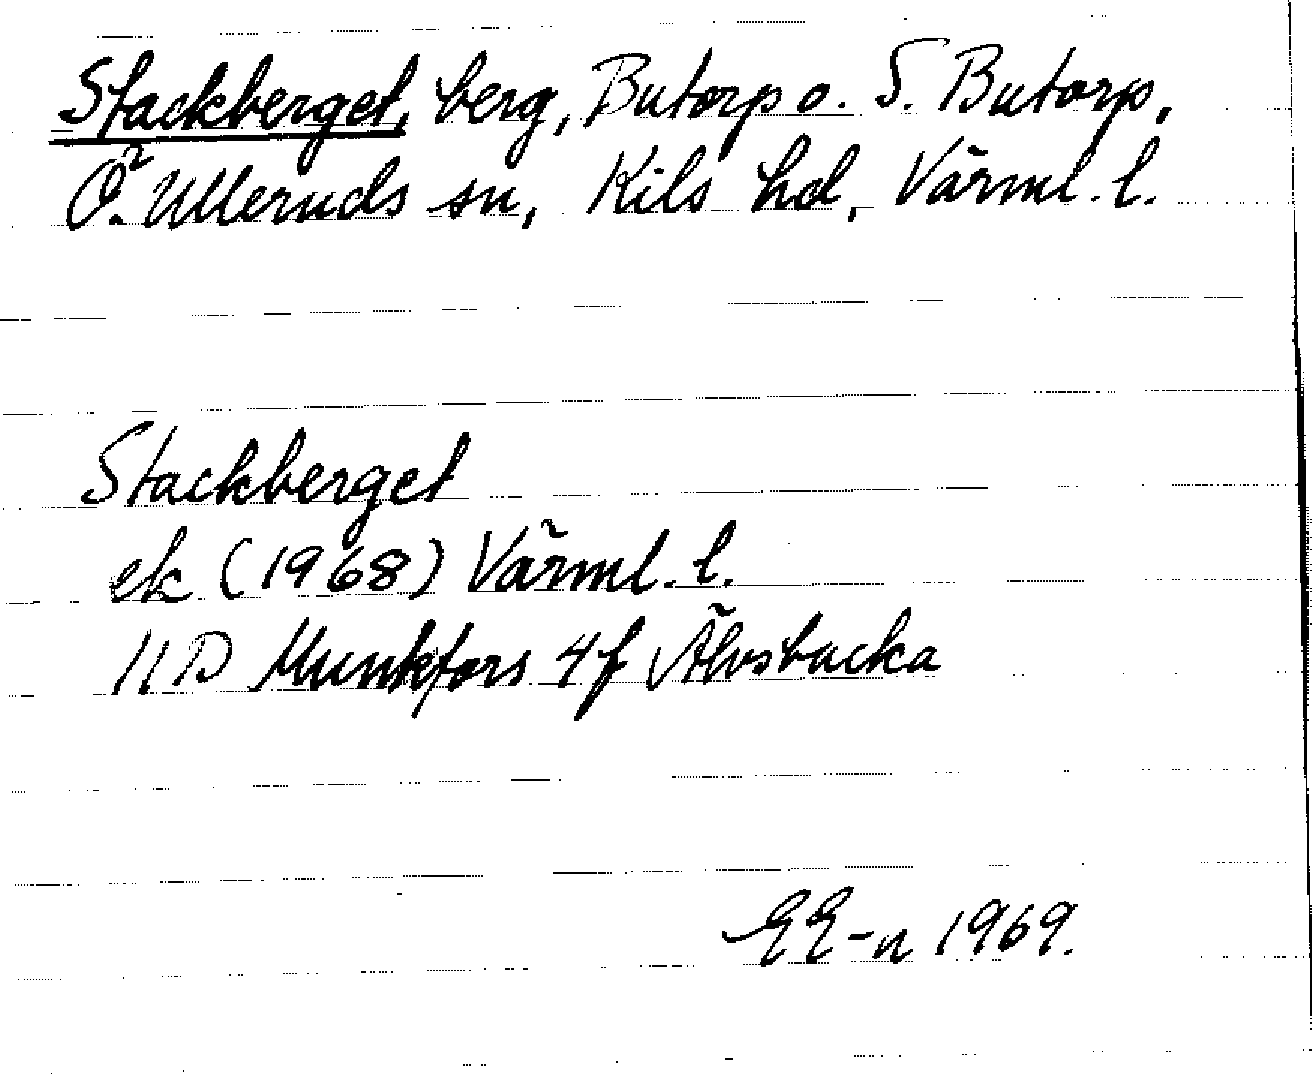 Stackberget, berg, Butorp o. S. Butorp,
Ö. Ulleruds sn, Kils hd, Värml. l.
Stackberget
ek (1968) Värml. l.
11D Munkfors 4f Älvsbacka
EE-n 1969.